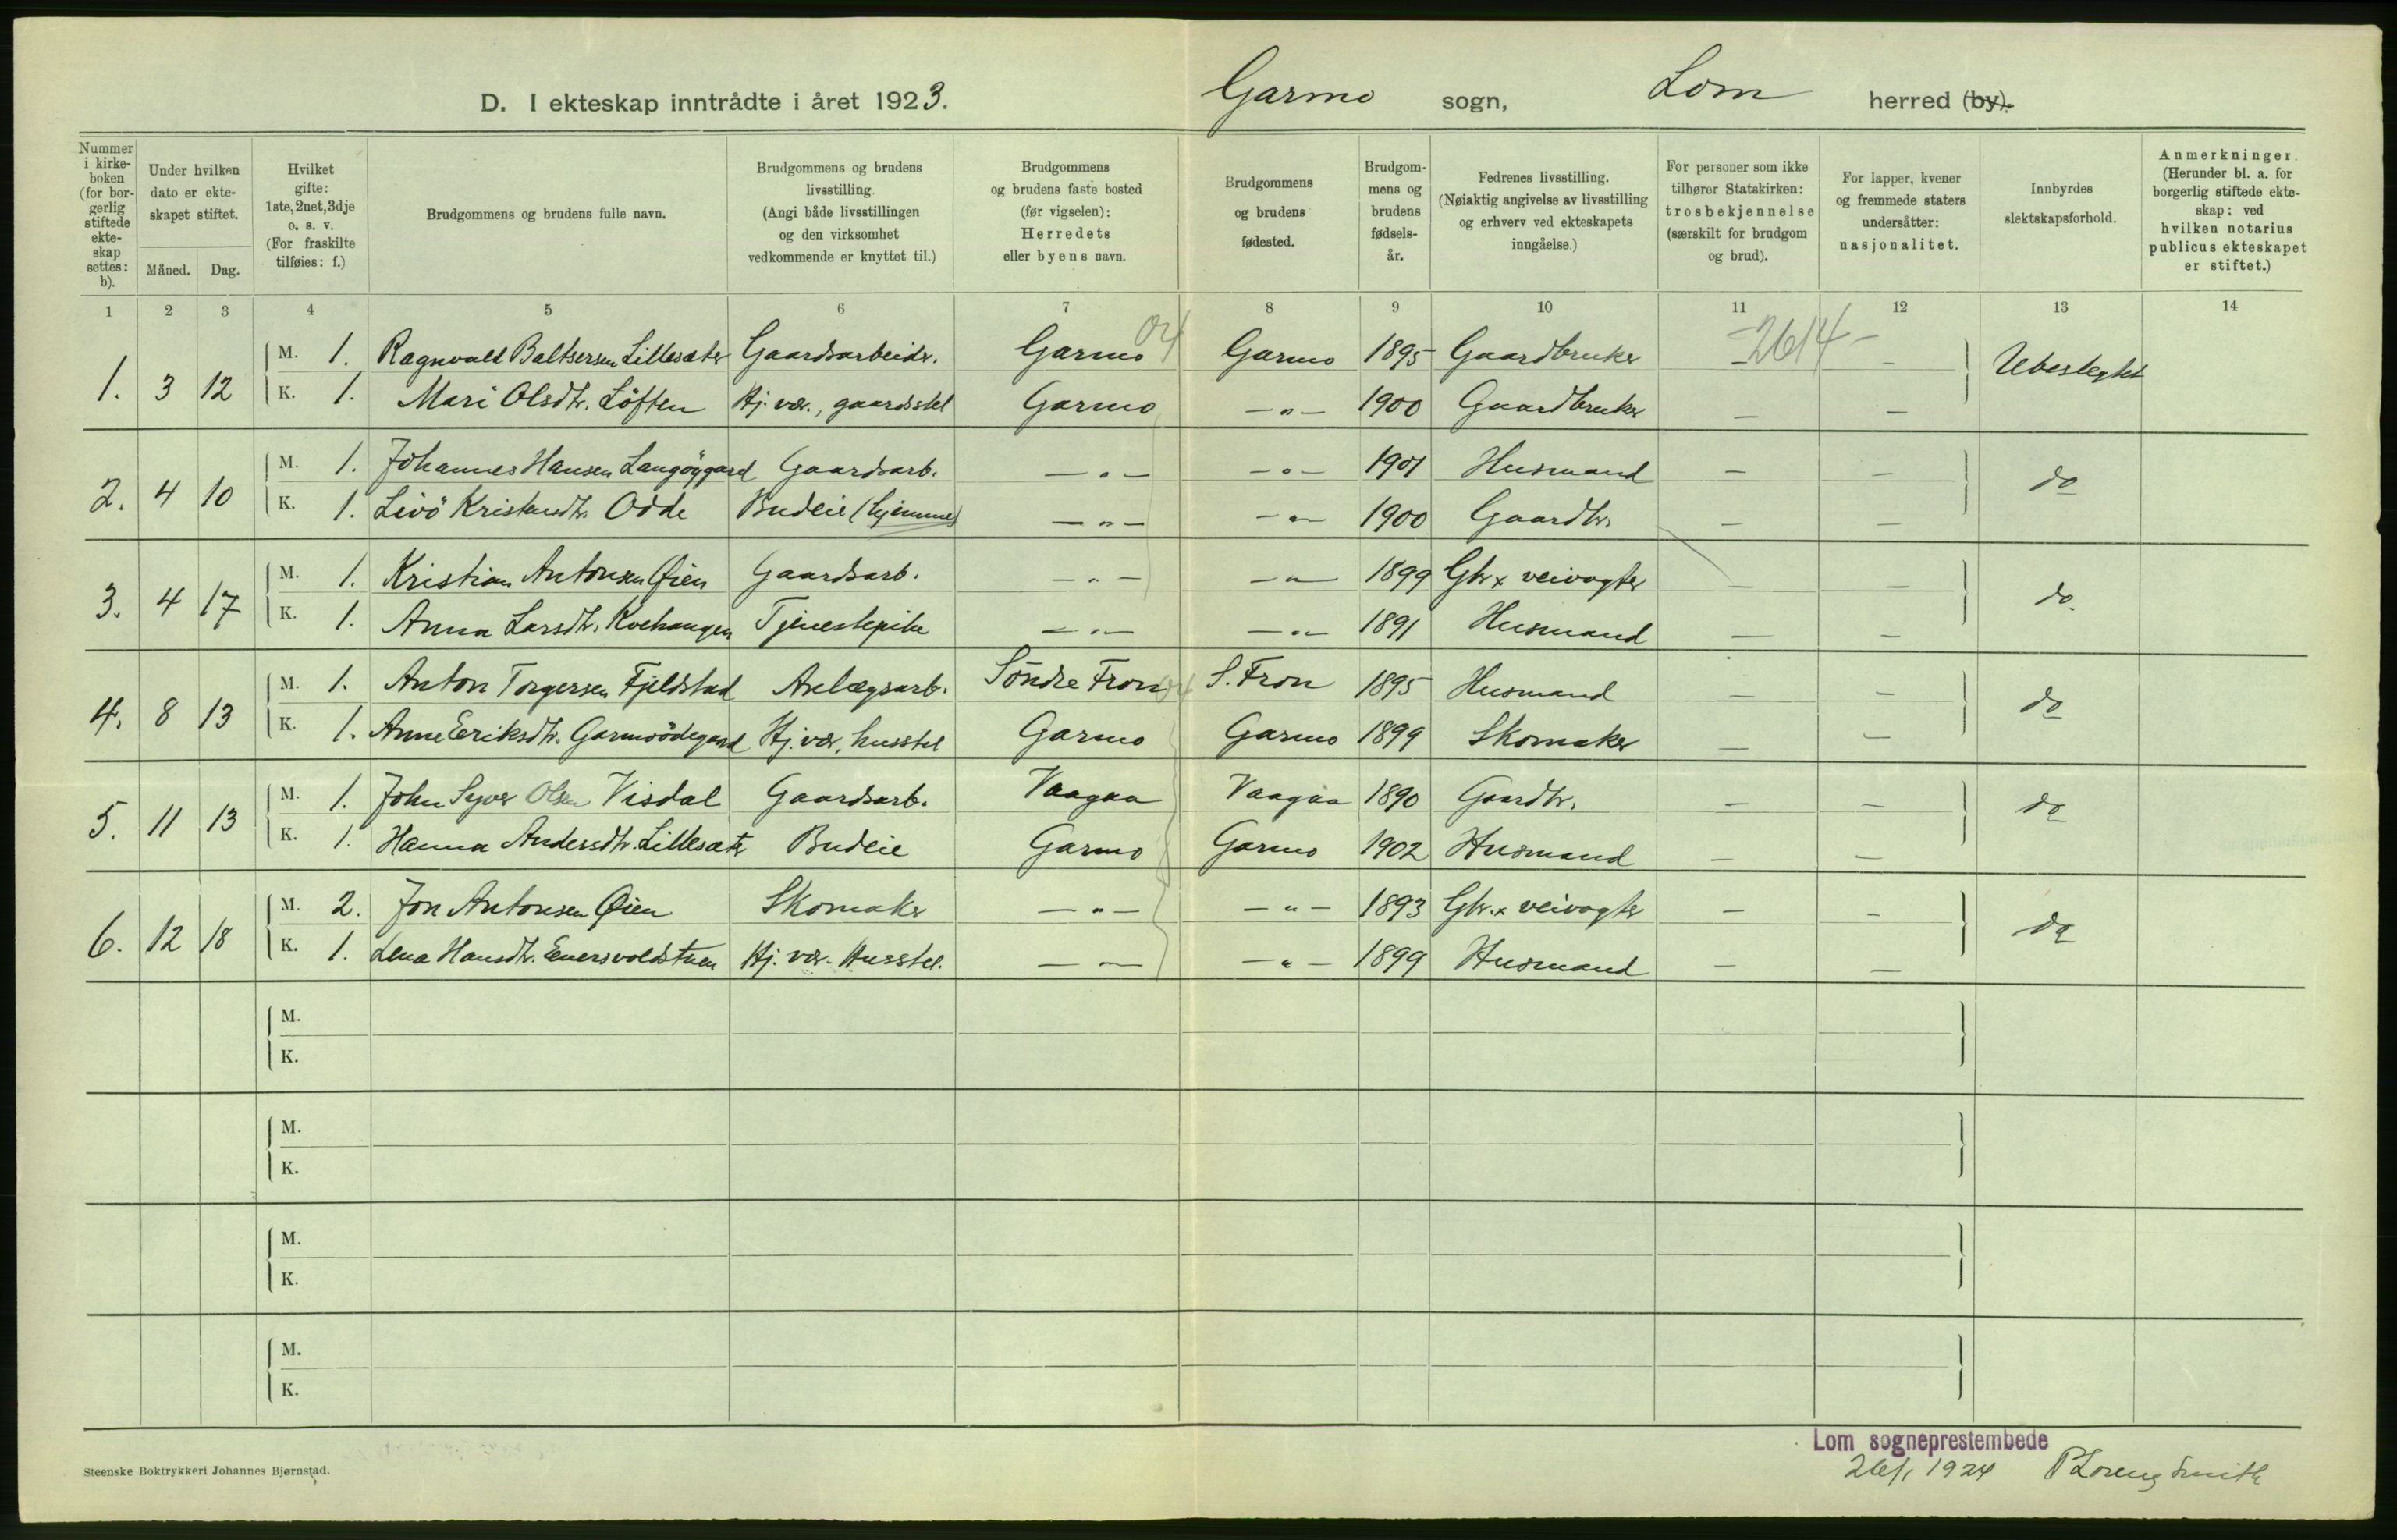 D. I ekteskap inntrådte i året 1923. Garmo sogn, Lom herred (by).
Nummer i kirke-boken (for bor-gerlig stiftede ekte-skap settes: b).
Under hvilken dato er ekte-skapet stiftet.
Måned. Dag.
Hvilket gifte: 1ste, 2net, 3dje o. s. v. (For fraskilte tilføies: f.)
Brudgommens og brudens fulle navn.
Brudgommens og brudens livsstilling. (Angi både livsstillingen og den virksomhet vedkommende er knyttet til.)
Brudgommens og brudens faste bosted (før vigselen): Herredets eller byens navn.
Brudgommens og brudens fødested.
Brudgom-mens og brudens fødsels-år.
Fedrenes livsstilling. (Nøiaktig angivelse av livsstilling og erhverv ved ekteskapets inngåelse.)
For personer som ikke tilhører Statskirken: trosbekjennelse (særskilt for brudgom og brud).
For lapper, kvener og fremmede staters undersåtter: nasjonalitet.
Innbyrdes slektskapsforhold.
Anmerkninger. (Herunder bl. a. for borgerlig stiftede ekte-skap: ved hvilken notarius publicus ekteskapet er stiftet.)
1 2 3 4 5 6 7 8 9 10 11 12 13 14
1. 3 12 M. 1. Ragnvald Baltsersen Lillesæter Gaardsarbeidr. Garmo Garmo 1895 Gaardbruker - 2614 - - Ubeslegtet
K. 1. Mari Olsdtr. Löften Hj. vær., gaardsstel Garmo - " - 1900 Gaardbruker - -
2. 4 10 M. 1. Johannes Hansen Langöygard Gaardsarb. - " - - " - 1901 Husmand - - do
K. 1. Livö Kristensdtr. Odde Budeie (hjemme) - " - - " - 1900 Gaardbr. - -
3. 4 17 M. 1. Kristian Antonsen Øien Gaardsarb. - " - - " - 1899 Gbr. x veivogter - - do.
K. 1. Anna Larsdtr. Kvehaugen Tjenestepike - " - - " - 1891 Husmand - -
4. 8 13 M. 1. Anton Torgersen Fjeldstad Anlægsarb. Söndre Fron S. Fron 1895 Husmand - - do
K. 1. Anne Eriksdtr. Garmoödegard Hj. vær, husstel Garmo Garmo 1899 Skomaker - -
5. 11 13 M. 1. John Syver Olsen Visdal Gaardsarb. Vaagaa Vaagaa 1890 Gaardbr. - - do
K. 1. Hanna Andersdtr. Lillesæter Budeie Garmo Garmo 1902 Husmand - -
6. 12 18 M. 2. Jon Antonsen Øien Skomaker - " - - " - 1893 Gbr. x veivogter - - do
K. 1. Lena Hansdtr. Enersvoldstuen Hj. vær. Husstel. - " - - " - 1899 Husmand - -
M.
K.
M.
K.
M.
K.
M.
K.
Lom sogneprestembede
Steenske Boktrykkeri Johannes Bjørnstad.
26/1 1924 P Lorenz Smith